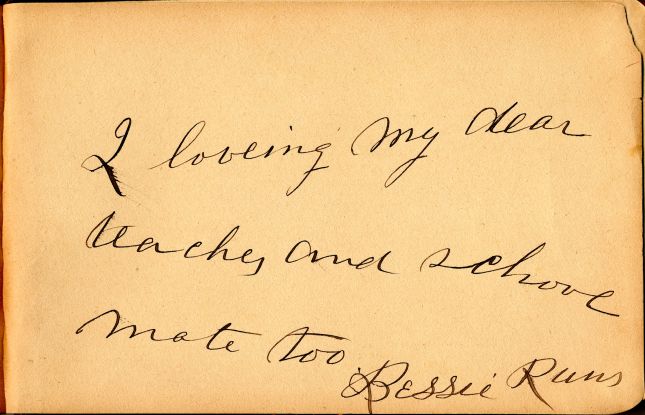 I loveing my dear
teacher and schove
mate too
Bessie Runs